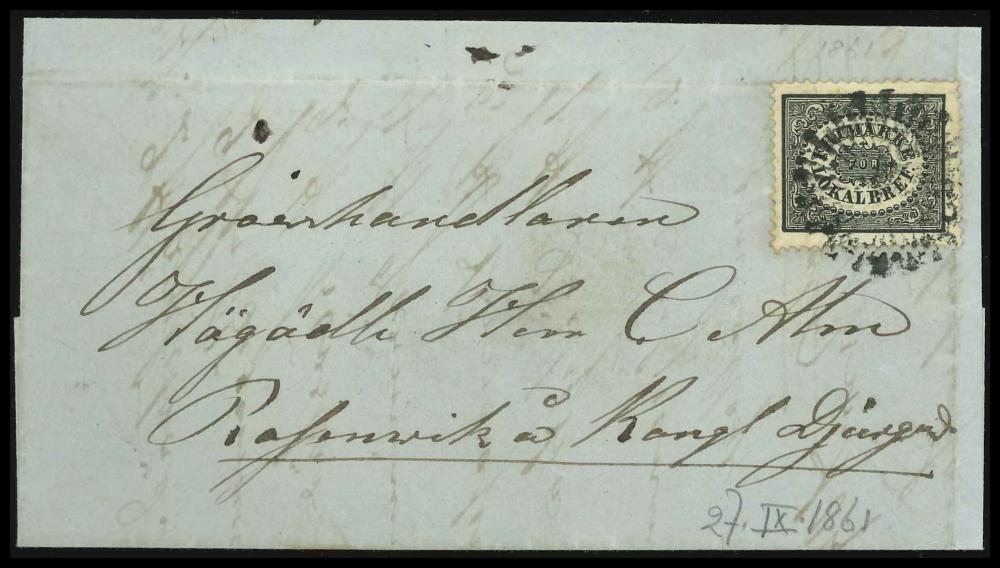 1861
FRIMÄRKE
FÖR
LOKALBREF.
Grosshandlaren
Högädle Herr C Alm
Rosenwik å Kongl Djurgrd
27. IX. 1861